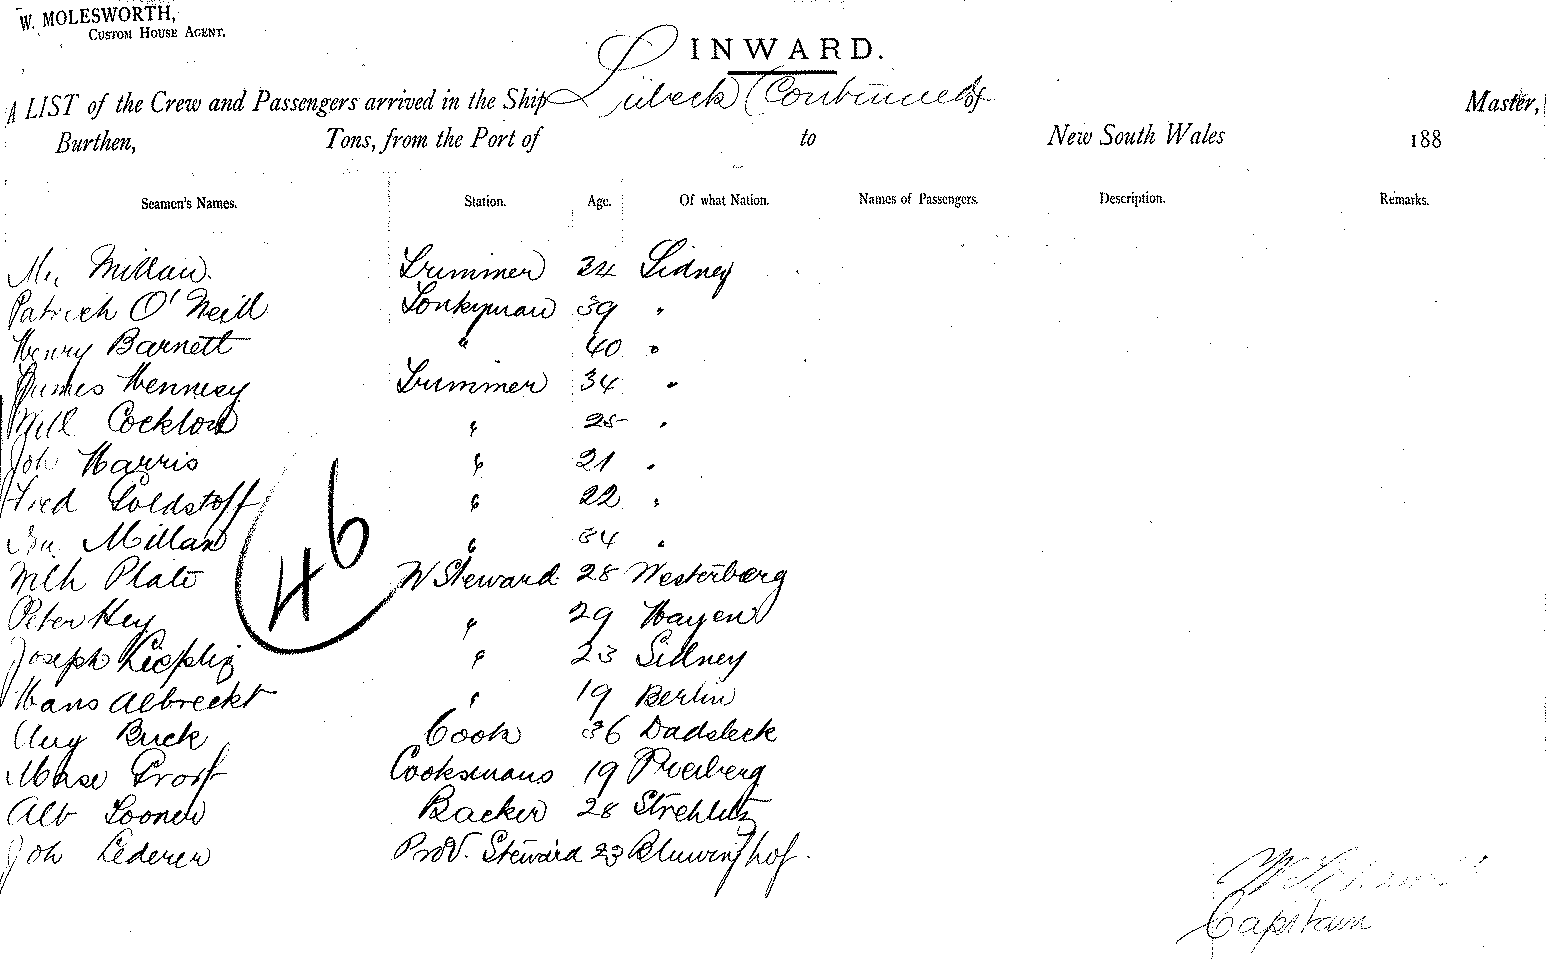 W. MOLESWORTH,
CUSTOM HOUSE AGENT.
INWARD.
A LIST of the Crew and Passengers arrived in the Ship Lübeck (Continued) of Master,
Burthen, Tons, from the Port of to New South Wales 188
Seamen's Names. Station. Age. Of what Nation. Names of Passengers. Description. Remarks.
Mc Millan. Trimmer 34 Sidney
Patrick O'Neill Donkyman 39 "
Henry Barnett " 40 "
James Hennesy Trimmer 34 "
Will Cocklon " 25 "
Joh Harris " 21 "
Fred Goldstoff " 22 "
Millan " 34 "
Wilh Plate W Steward 28 Westerberg
Peter Hey " 29 Hayen
Joseph " 23 Sidney
Hans Albreckt " 19 Berlin
Aug Buck Cook 36
Cooksmans 19
Alb Backer 28 Strehlitz
Joh Lederer Prov. Steward 23
46
Capitain